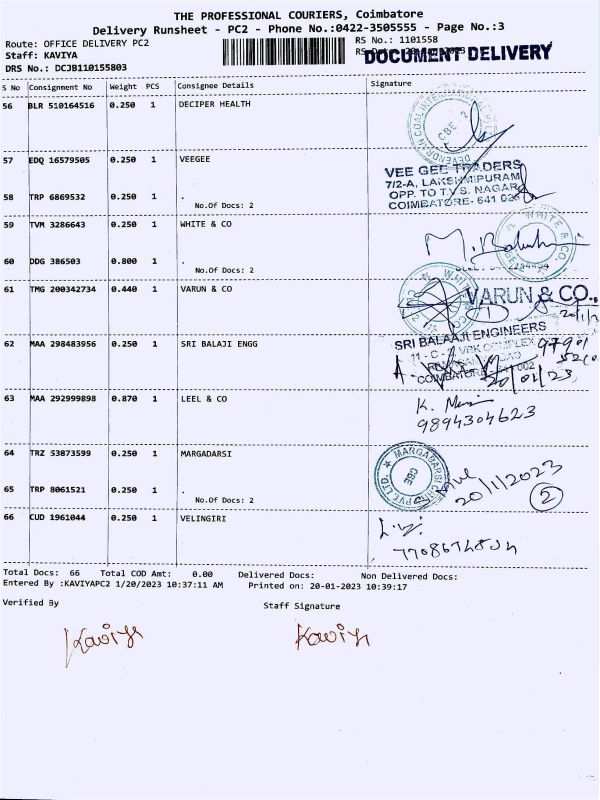 THE PROFESSIONAL COURIERS, Coimbatore
Delivery Runsheet - PC2 - Phone No.:0422-3505555 - Page No.:3
Route: OFFICE DELIVERY PC2
RS No.: 1101558
Staff: KAVIYA
DOCUMENT DELIVERY
DRS No.: DCJB110155803
S No Consignment No Weight PCS Consignee Details Signature
56 BLR 510164516 0.250 1 DECIPER HEALTH
CBE - 2
57 EDQ 16579505 0.250 1 VEEGEE
VEE GEE TRADERS
7/2-A, LAKSHMIPURAM
OPP. TO T.V.S. NAGAR
COIMBATORE- 641 025
58 TRP 6869532 0.250 1 .
No.Of Docs: 2
59 TVM 3286643 0.250 1 WHITE & CO
WHITE & CO.
60 DDG 386503 0.800 1 .
No.Of Docs: 2
61 TMG 200342734 0.440 1 VARUN & CO
VARUN & CO.,
62 MAA 298483956 0.250 1 SRI BALAJI ENGG
SRI BALAAJI ENGINEERS
20/01/23
63 MAA 292999898 0.870 1 LEEL & CO
9894304623
64 TRZ 53873599 0.250 1 MARGADARSI
MARGADARSI
CBE
20/1/2023
2
65 TRP 8061521 0.250 1 .
No.Of Docs: 2
66 CUD 1961044 0.250 1 VELINGIRI
Total Docs: 66 Total COD Amt: 0.00 Delivered Docs: Non Delivered Docs:
Entered By :KAVIYAPC2 1/20/2023 10:37:11 AM Printed on: 20-01-2023 10:39:17
Verified By Staff Signature
Kaviya Kaviya